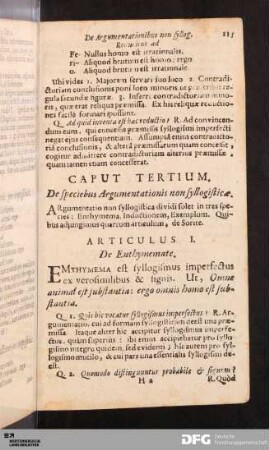 De Argumentationibus non Syllog. 115
Reducitur ad
Fe- Nullus homo est irrationalis.
ri- Aliquod brutum est homo: ergo
o. Aliquod brutum est irrationale.
Ubi vides 1. Majorem servari suo loco 2. Contradi-
ctoriam conclusionis poni loco minoris
gula secundæ figuræ. 3. Inferri contradictoriam mino-
ris, quæ erat reliqua præmissa. Ex his reliquæ reductio-
nes facile formari possunt.
Q. Ad quid inventa est hæc reductio? R. Ad convincen-
dum eum, qui concessis præmissis syllogismi imperfecti
negat ejus consequentiam. Assumta enim contradicto-
ria conclusionis, & altera præmissarum quam concessit,
cogitur admittere contradictoriam alterius præmissæ
quam tamen etiam concesserat.
CAPUT TERTIUM.
De speciebus Argumentationis non syllogisticæ.
ARgumentatio non syllogistica dividi solet in tres spe-
cies: Enthymema, Inductionem, Exemplum. Qui-
bus adjungimus quartum articulum, de Sorite.
ARTICULUS I.
De Enthymemate.
EMTHYMEMA est syllogismus imperfectus
ex verosimilibus & signis. Ut, Omne
animal est substantia: ergo omnis homo est sub-
stantia.
Q. 1. Quî hic vocatur syllogismus imperfectus? R. Ar-
gumentatio, cui ad formam syllogisticam deest una præ-
missa. Itaque aliter hic accipitur syllogismus imperfe-
ctus, quam superius: ibi enim accipiebatur pro syllo-
gismo integro quidem, sed evidenti; hic autem pro syl-
logismo mutilo, & cui pars una essentialis syllogismi de-
est.
Q. 2. Quomodo distinguuntur probabile & signum?
H 2 R. Quod
DFG